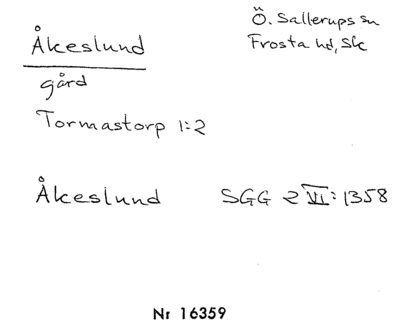 Åkeslund
Ö. Sallerups sn
Frosta hd, Sk
gård
Tormastorp 1:2
Åkeslund SGG 2 VI: 1358
Nr 16359